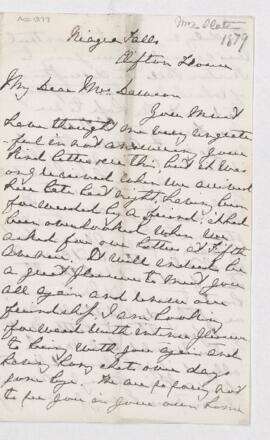 Acc 1877
Mrs
1879
Niagra Falls
Clifton House
My Dear Mrs Dawson
You must
have thought me very ungrate
-ful in not answering your
kind letter ere this, but it was
only received when we arrived
here late last night, having been
forwarded by a friend; it had
been overlooked when we
asked for our letters at Fifth
Avenue. It will indeed be
a great pleasure to meet you
all again and renew our
friendship. I am looking
forward with intense pleasure
to being with you again and
having long chats over days
gone bye. We are so sorry not
to see you in your own home